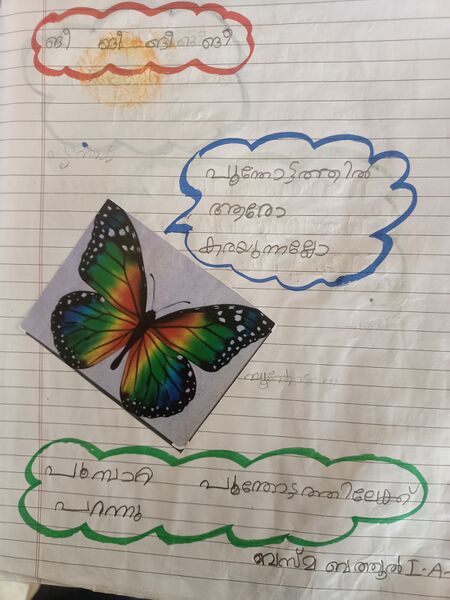 ഞീ ഞീ ഞീ ഞീ
പൂന്തോട്ടത്തിൽ
ആരോ
കരയുന്നല്ലോ
പൂമ്പാറ്റ പൂന്തോട്ടത്തിലേക്ക്
പറന്നു
ബസ്മ ബത്തൂൽ I-A-